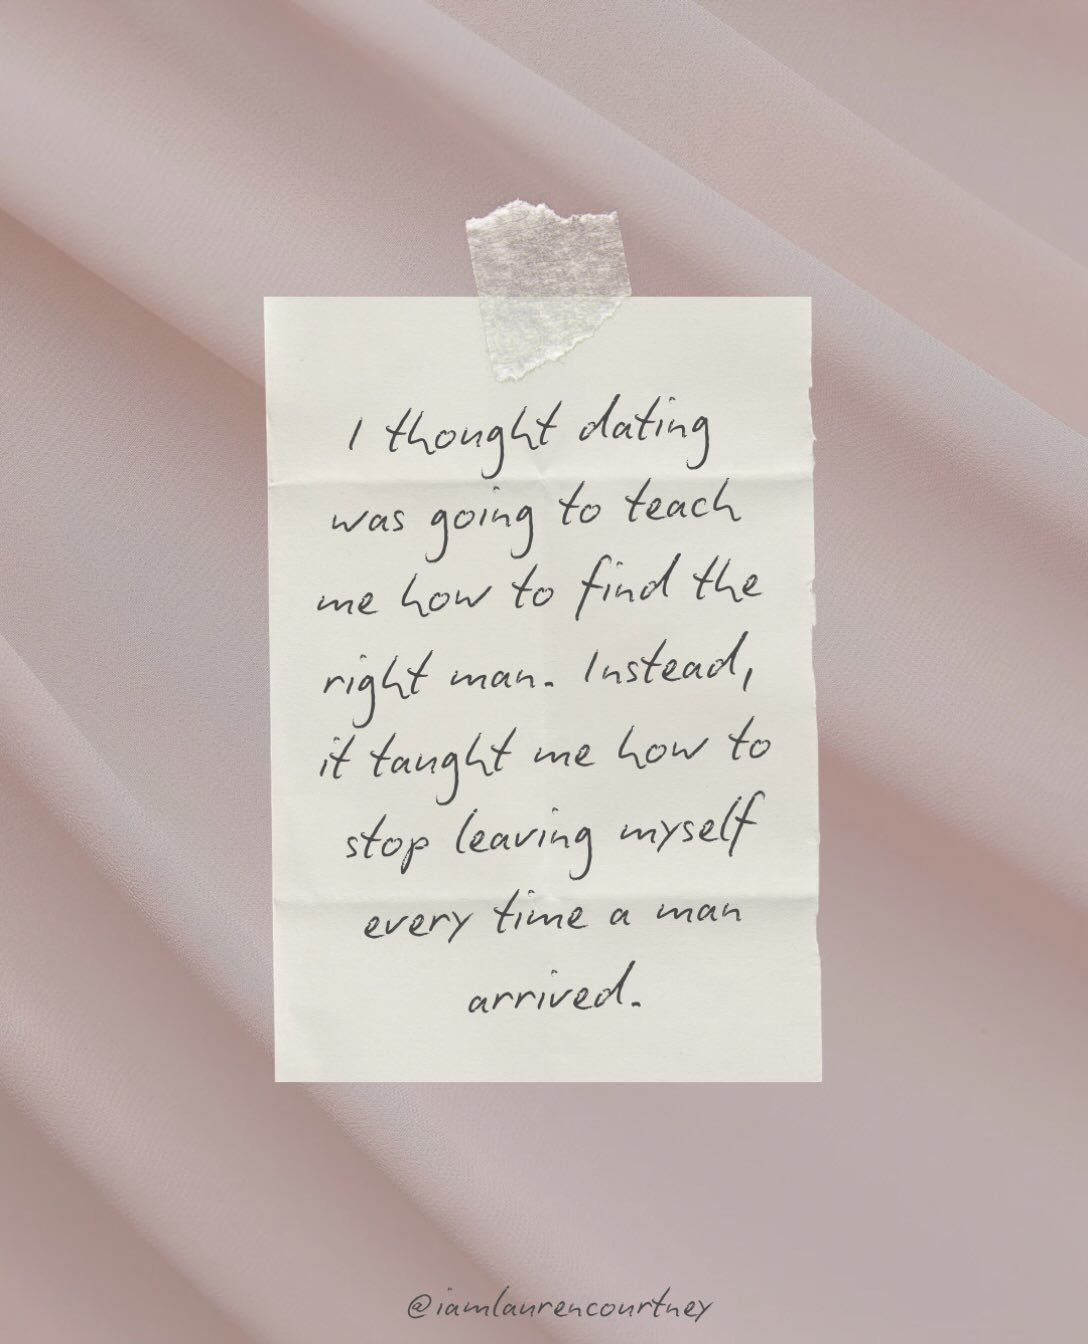 I thought dating
was going to teach
me how to find the
right man. Instead,
it taught me how to
stop leaving myself
every time a man
arrived.
@iamlaurencourtney